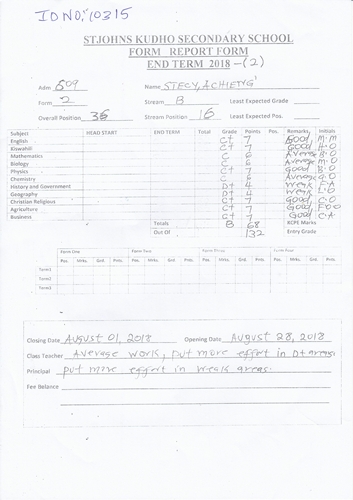 ID NO: 10315
ST.JOHNS KUDHO SECONDARY SCHOOL
FORM REPORT FORM
END TERM 2018 -(2)
Adm 609 Name STECY, ACHIENG'
Form 2 Stream B Least Expected Grade
Overall Position 36 Stream Position 16 Least Expected Pos.
Subject HEAD START END TERM Total Grade Points Pos. Remarks Initials
English C+ 7 Good M.M
Kiswahili C+ 7 Good
Mathematics C 6 Average B.O
Biology C 6 Average M.O
Physics C+ 7 Good B.O
Chemistry C 6 Average
History and Government D+ 4 Weak E.A
Geography D+ 4 Weak
Christian Religious C+ 7 Good C.O
Agriculture C+ 7 Good
Business C+ 7 Good C.A
Totals B 68 KCPE Marks
Out Of 132 Entry Grade
Form One Form Two Form Three Form Four
Pos. Mrks. Grd. Pnts. Pos. Mrks. Grd. Pnts. Pos. Mrks. Grd. Pnts. Pos. Mrks. Grd. Pnts.
Term1
Term2
Term3
Closing Date AUGUST 01, 2018 Opening Date AUGUST 28, 2018
Class Teacher Average work, put more effort in D+ areas.
Principal put more effort in weak areas.
Fee Balance